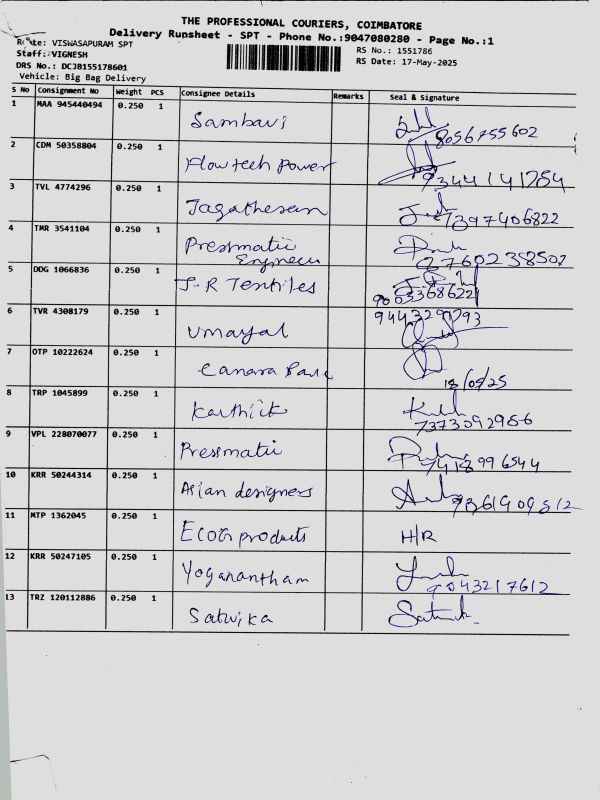 THE PROFESSIONAL COURIERS, COIMBATORE
Delivery Runsheet - SPT - Phone No.:9047080280 - Page No.:1
Route: VISWASAPURAM SPT
RS No.: 1551786
Staff: VIGNESH
RS Date: 17-May-2025
DRS No.: DCJB155178601
Vehicle: Big Bag Delivery
S No Consignment No Weight PCS Consignee Details Remarks Seal & Signature
1 MAA 945440494 0.250 1 Sambavi 8056755602
2 CDM 50358804 0.250 1 Flowtech power 9344141784
3 TVL 4774296 0.250 1 Jagatheesan 7397406822
4 TMR 3541104 0.250 1 Pressmatic
Engineer 8760238502
5 DDG 1066836 0.250 1 J-R Textiles
9003368622
6 TVR 4308179 0.250 1 Umayal
7 OTP 10222624 0.250 1 Canara Bank
18/05/25
8 TRP 1045899 0.250 1 Karthik
7373092986
9 VPL 228070077 0.250 1 Pressmatic
7418996544
10 KRR 50244314 0.250 1 Asian designers
11 MTP 1362045 0.250 1 products H/R
12 KRR 50247105 0.250 1 Yoganantham
9043217612
13 TRZ 120112886 0.250 1 Satwika